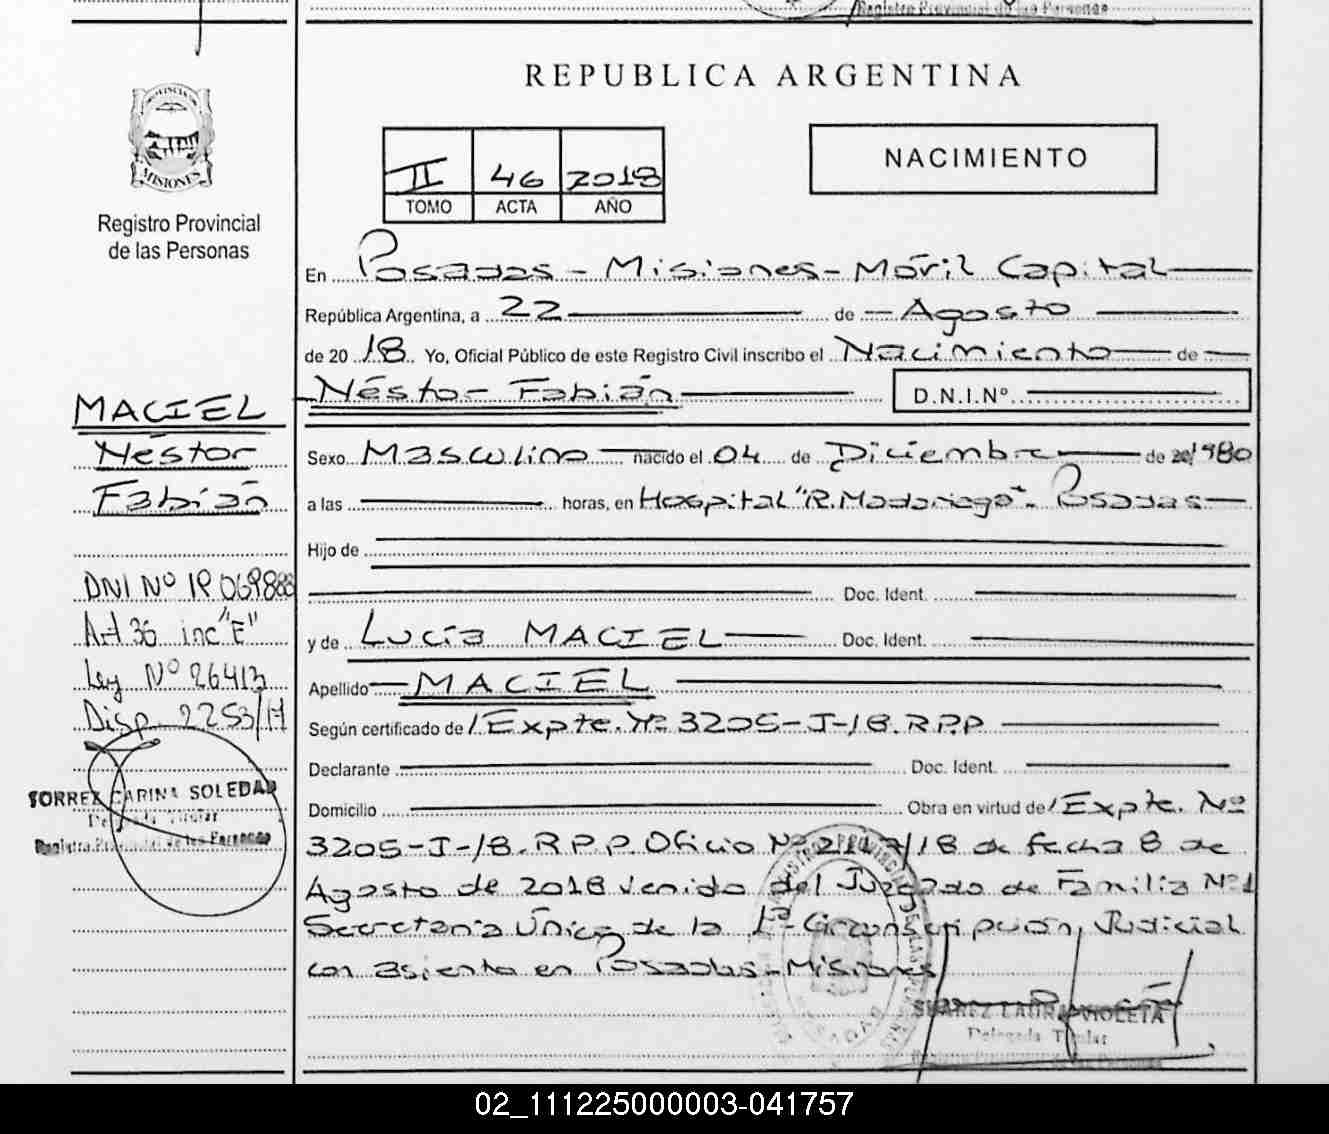 Registro Provincial de las Personas
REPUBLICA ARGENTINA
PROVINCIA DE
MISIONES
Registro Provincial
de las Personas
II 46 2018
TOMO ACTA AÑO
NACIMIENTO
En Posadas - Misiones - Móvil Capital
República Argentina, a 22 de Agosto
de 20 18 Yo, Oficial Público de este Registro Civil inscribo el Nacimiento de
Néstor Fabián D.N.I.Nº
MACIEL
Néstor
Fabián
Sexo Masculino nacido el 04 de Diciembre de 20 1980
a las horas, en Hospital "R. Madariaga". Posadas
Hijo de
Doc. Ident.
y de Lucía MACIEL Doc. Ident.
Apellido MACIEL
Según certificado de Expte. Nº 3205-J-18. R.P.P
Declarante Doc. Ident.
Domicilio Obra en virtud de Expte. Nº
3205-J-18. R.P.P. Oficio Nº /18 de fecha 8 de
Agosto de 2018 venido del Juzgado de Familia Nº1
Secretaria Única de la 1ª Circunscripción Judicial
con asiento en Posadas - Misiones
DNI Nº
Art 36 inc "E"
Ley Nº 26413
Disp. 2253/17
TORREZ CARINA SOLEDAD
Delegada Titular
Registro Provincial de las Personas
SUAREZ LAURA VIOLETA
Delegada Titular
Registro Provincial de las Personas
02_111225000003-041757